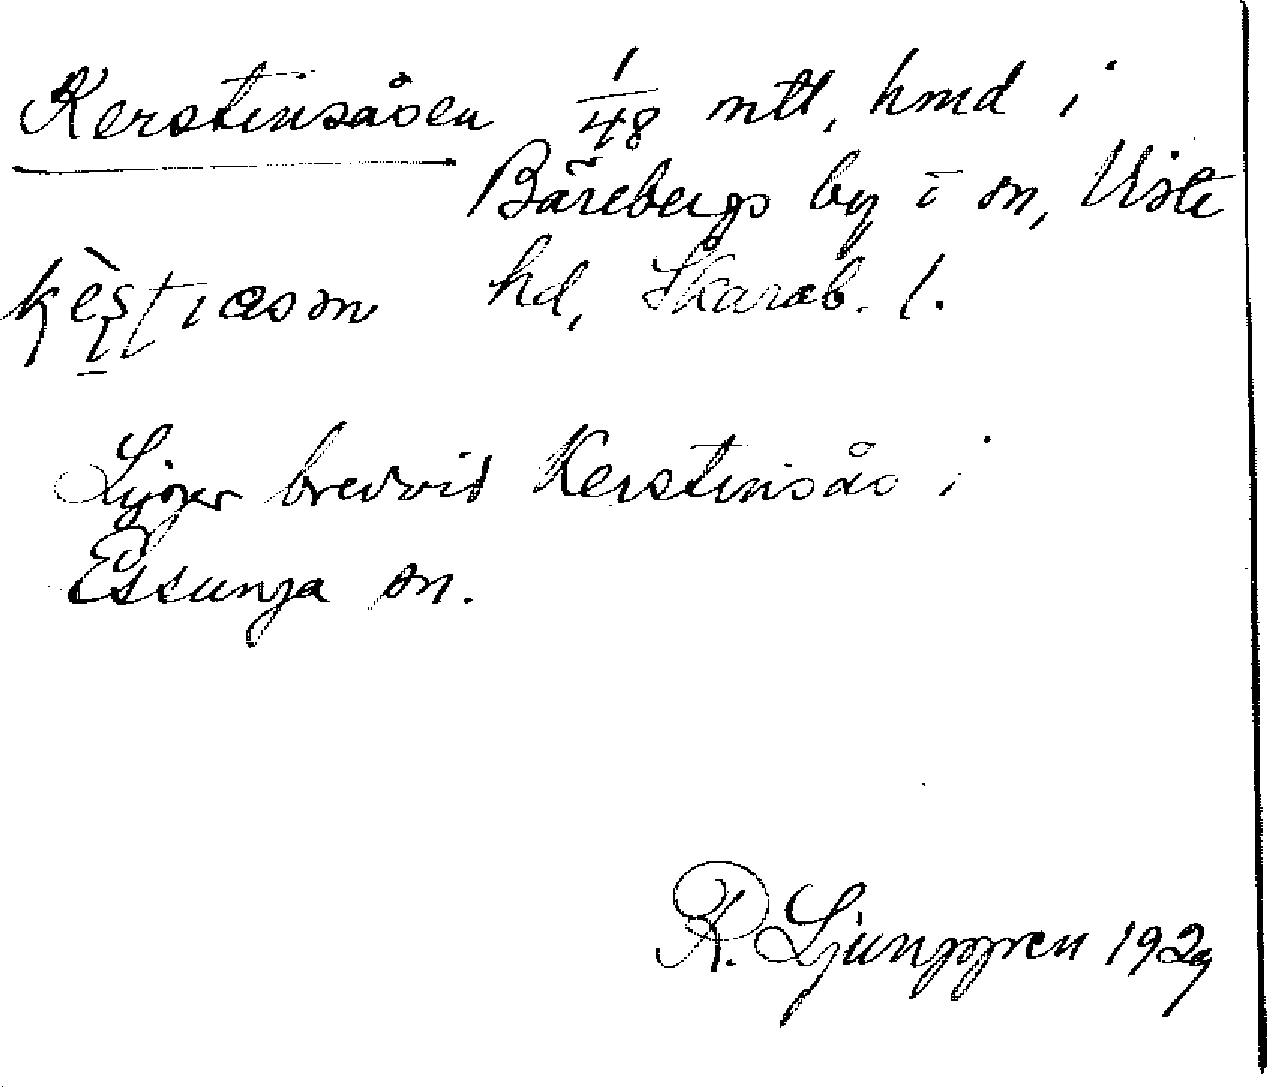 Kerstinsåsen 1/48 mtl, hmd i
Bärebergs by i sn, Viste
hd, Skarab. l.
Ligger bredvid Kerstinsås i
Essunga sn.
R. Ljunggren 1929